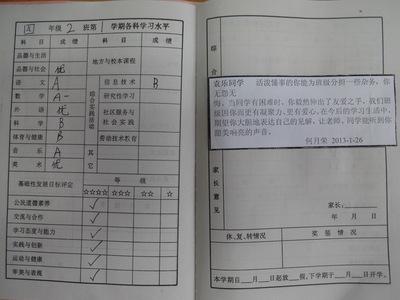 四 年级 2 班第 学期各科学习水平
科目 成绩 科目 成绩
品德与生活 地方与校本课程
品德与社会 优
语文 A 综合实践活动 信息技术 B
数学 A- 研究性学习
外语 优 社区服务与社会实践
科学 B
体育与健康 B 劳动技术教育
音乐 A 其它
美术 优
基础性发展目标评定 等级
☆☆☆☆ ☆☆☆ ☆☆ ☆
公民道德素养 ✓
交流与合作 ✓
学习态度与能力 ✓
实践与创新 ✓
运动与健康 ✓
审美与表现 ✓
综合
袁乐同学 活泼懂事的你能为班级分担一些杂务，你
无怨无
悔。当同学有困难时，你毅然伸出了友爱之手。我们班
级因你而更有凝聚力，更有爱心。在今后的学习生活中，
期望你大胆地表达自己的见解，让老师、同学能听到你
甜美响亮的声音。
何月荣 2013-1-26
家长意见
家长：
年 月 日
休、复、转情况 奖惩情况
本学期自 月 日起放 假，下学期于 月 日开学。